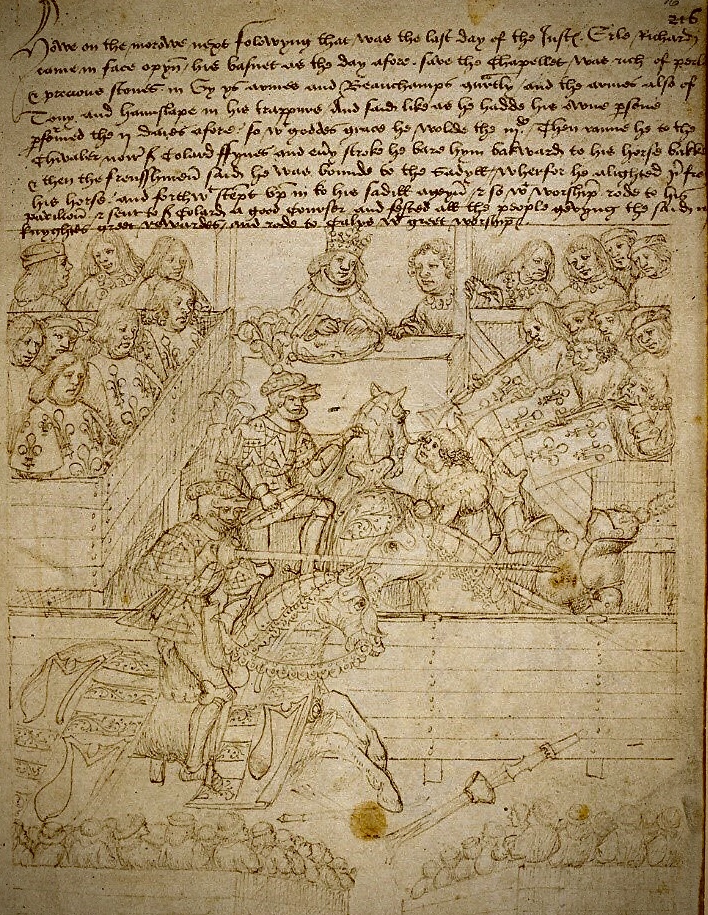 216
Howe on the morowe next folowyng that was the last day of the Justes Erle Richard
came in face opyn his basnet as the day afore save the Chapellet was rich of perle
& precious stones in Gy ys armes and Beauchamps qartly and the armes also of
Tony and hamslape in his trappure And saide like as he hadde his owne psone
pformed the ij daies afore so w goddes grace he wolde the iijde Then ranne he to the
Chivaler now S Colard ffynes and eny stroke he bare hym bakward to his horse bakke
& then the frensshmen saide he was bounde to the Sadyll wherfor he alighted
his horse and forthw stept vp in to his sadill ageyn & so w worship rode to his
pavilion & sent to S Colard a good Courser and fested all the people gevyng the saide
knyghtes greet rewardes and rode to Calys w greet worship